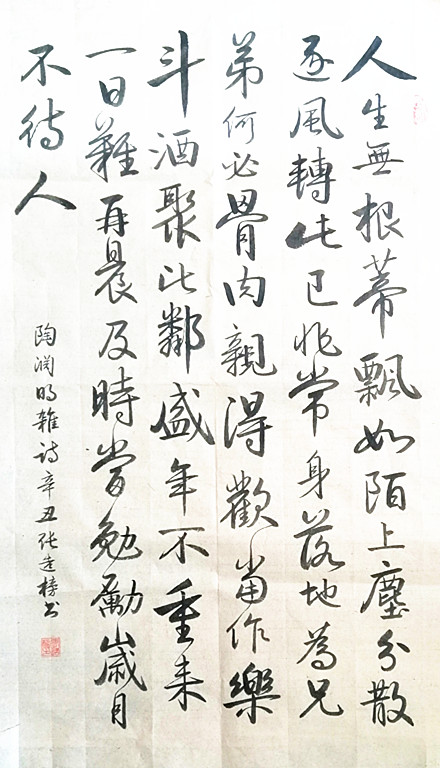 人生無根蒂飄如陌上塵分散
逐風轉此已非常身落地為兄
弟何必骨肉親得歡當作樂
斗酒聚比鄰盛年不重来
一日難再晨及時當勉勵歲月
不待人
陶渊明雜诗辛丑张连榜书